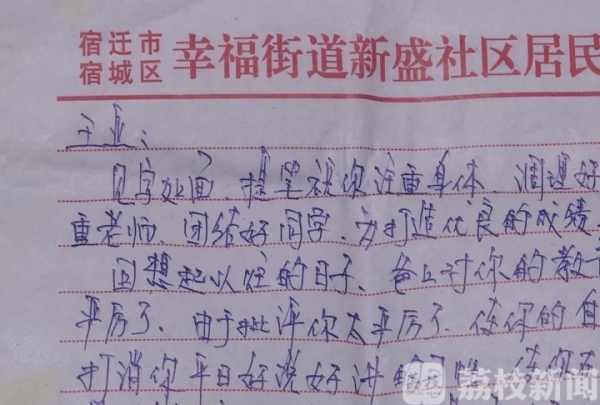 宿迁市
宿城区 幸福街道新盛社区居民
子亚:
见字如面、提笔祝你注重身体、调理好
重老师、团结好同学、为打造优良的成绩、
回想起以往的日子、爸以对你的教
严厉了、由于批评你太严厉了、使你的自
打消你平日好说好讲的 使你
荔枝新闻